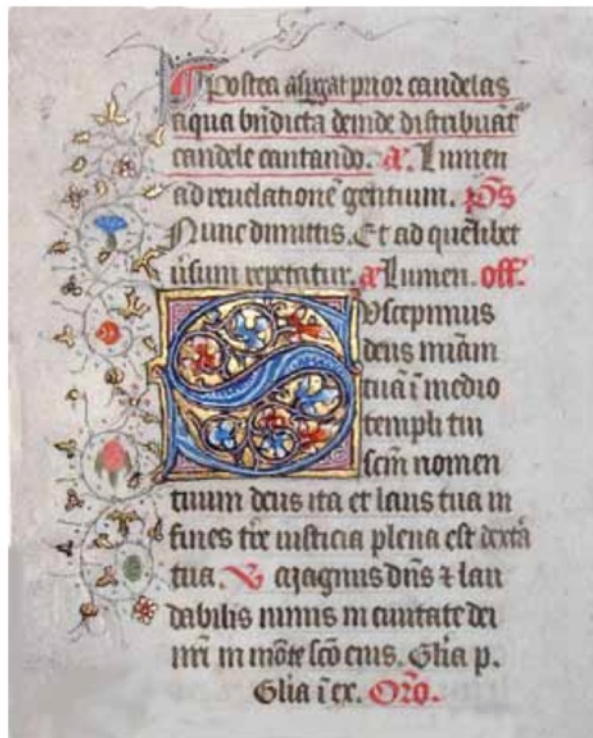 Postea aspergat prior candelas
aqua bn̄dicta deinde distribuāt᷑
candele cantando. a. Lumen
ad reuelationē gentium. p̄s
Nunc dimittis. Et ad quēlibet
uersum repetatur. a Lumen. off.
Suscepimus
deus miām
tuā ī medio
templi tui
scd̄m nomen
tuum deus ita et laus tua in
fines tr̄e iusticia plena est dext̄a
tua. V Magnus dn̄s ⁊ lau
dabilis nimis in ciuitate dei
nr̄i in mōte sc̄o eius. Gl̄ia p.
Gl̄ia ī ex. Or̄o.